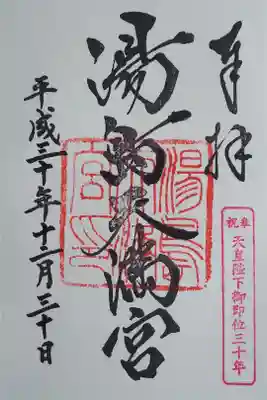 奉拝
奉祝
天皇陛下御即位三十年
湯島天満宮
平成三十年十二月三十日